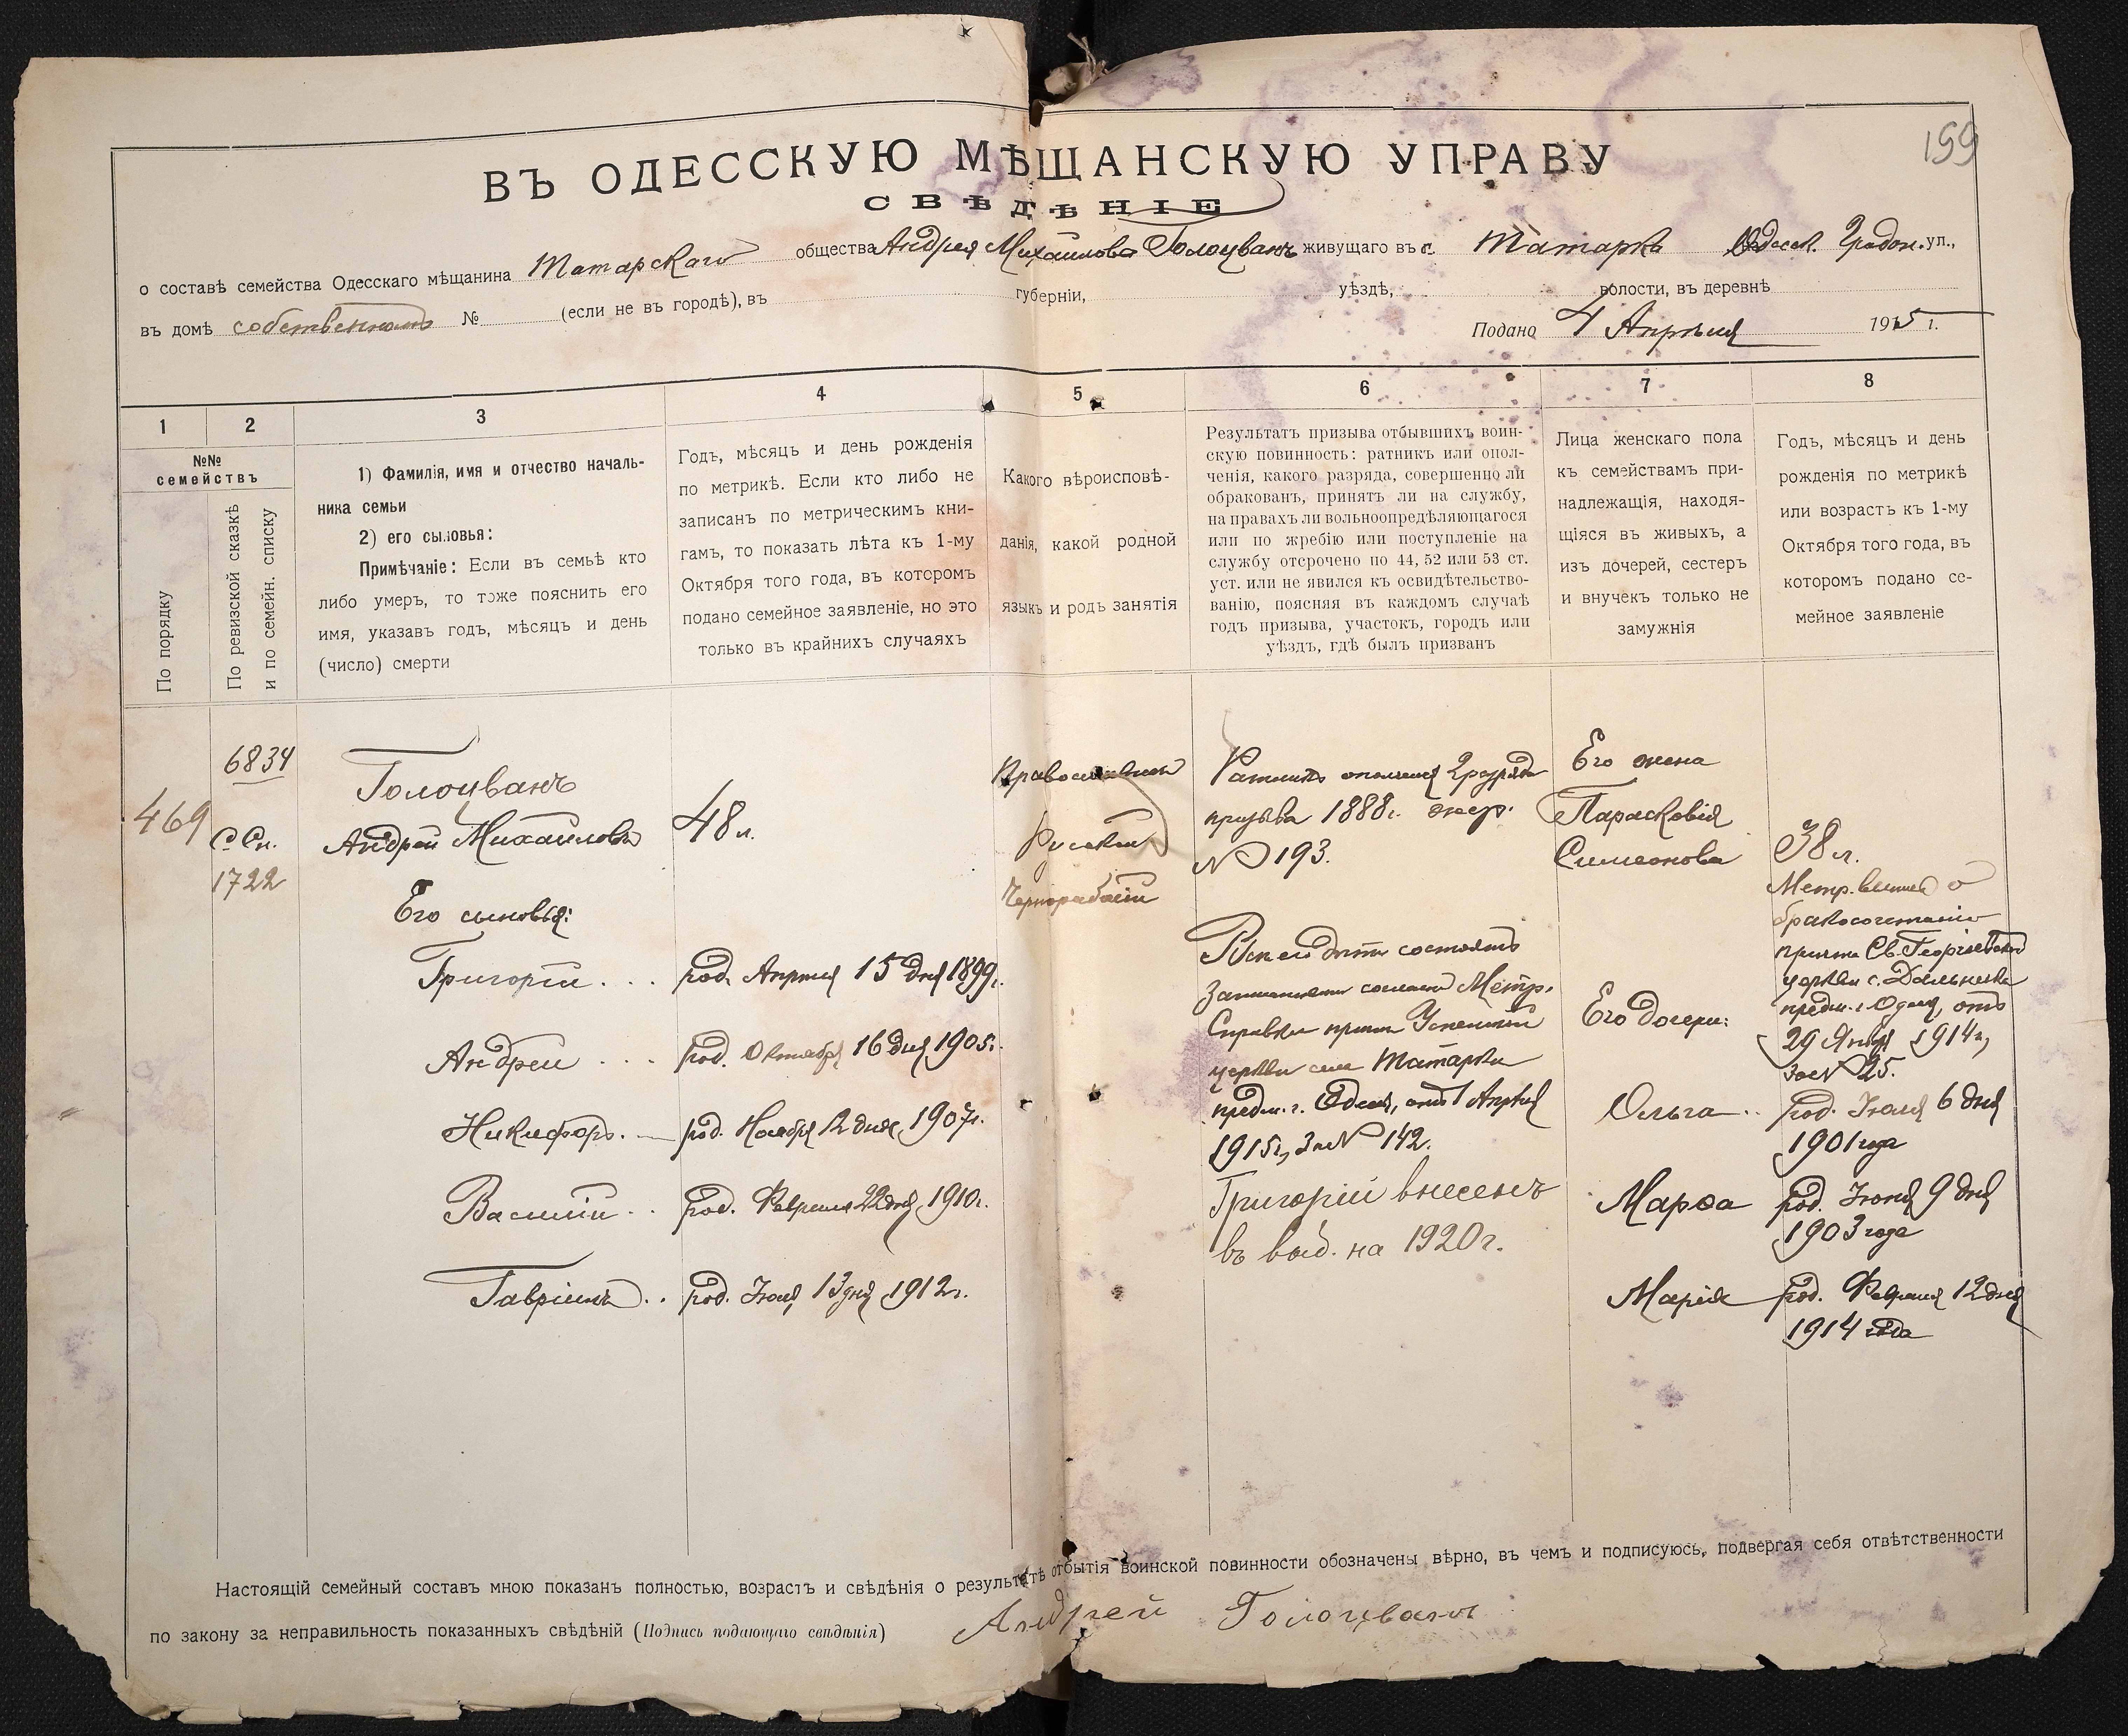 199
ВЪ ОДЕССКУЮ МѢЩАНСКУЮ УПРАВУ
СВѢДѢНІЕ
о составѣ семейства Одесскаго мѣщанина Татарскаго общества Андрея Михайлова Голоцванъ живущаго въ с. Татарка Одесск. Градон. ул.,
въ домѣ собственномъ № (если не въ городѣ), въ губерніи, уѣздѣ, волости, въ деревнѣ
Подано 4 Апрѣля 1915 г.
1
2
3
4
5
6
7
8
№№
семействъ
По порядку
По ревизской сказкѣ
и по семейн. списку
1) Фамилія, имя и отчество началь-
ника семьи
2) его сыновья:
Примѣчаніе: Если въ семьѣ кто
либо умеръ, то тоже пояснить его
имя, указавъ годъ, мѣсяцъ и день
(число) смерти
Годъ, мѣсяцъ и день рожденія
по метрикѣ. Если кто либо не
записанъ по метрическимъ кни-
гамъ, то показать лѣта къ 1-му
Октября того года, въ которомъ
подано семейное заявленіе, но это
только въ крайнихъ случаяхъ
Какого вѣроисповѣ-
данія, какой родной
языкъ и родъ занятія
Результатъ призыва отбывшихъ воин-
скую повинность: ратникъ или опол-
ченія, какого разряда, совершенно ли
обракованъ, принятъ ли на службу,
на правахъ ли вольноопредѣляющагося
или по жребію или поступленіе на
службу отсрочено по 44, 52 или 53 ст.
уст. или не явился къ освидѣтельство-
ванію, поясняя въ каждомъ случаѣ
годъ призыва, участокъ, городъ или
уѣздъ, гдѣ былъ призванъ
Лица женскаго пола
къ семействамъ при-
надлежащія, находя-
щіяся въ живыхъ, а
изъ дочерей, сестеръ
и внучекъ только не
замужнія
Годъ, мѣсяцъ и день
рожденія по метрикѣ
или возрасть къ 1-му
Октября того года, въ
которомъ подано се-
мейное заявленіе
469
6834
С. Сп.
1722
Голоцванъ
Андрей Михайловъ
Его сыновья:
Григорій . . .
Андрей . . .
Никифоръ. —
Василій . .
Гавріилъ . .
48 л.
род. Апрѣля 15 дня 1899г.
род. Октября 16 дня 1905г.
род. Ноября 12 дня 1907г.
род. Февраля 22 дня 1910г.
род. Іюля 13 дня 1912г.
Православный
Русскій
Чернорабочій
Ратникъ ополченія 2 разряда
призыва 1888г. жер.
№ 193.
Всѣ дѣти состоятъ
записанными согласно Метр.
Справки причта Успенской
церкви села Татарки
предм. г. Одессы, отъ 1 Апрѣля
1915г., за № 142.
Григорій внесенъ
въ выб. на 1920г.
Его жена
Парасковія
Симеонова
Его дочери:
Ольга . .
Марѳа
Марія
38 л.
Метр. выпись о
бракосочетаніи
причта Св. Георгіевской
церкви с. Дальника
предм. г. Одессы, отъ
29 Января 1914г.,
за № 25.
род. Іюля 6 дня
1901 года
род. Іюня 9 дня
1903 года
род. Февраля 12 дня
1914 года
Настоящій семейный составъ мною показанъ полностью, возрастъ и свѣдѣнія о результатѣ отбытія воинской повинности обозначены вѣрно, въ чемъ и подписуюсь, подвергая себя отвѣтственности
по закону за неправильность показанныхъ свѣдѣній (Подпись подающаго свѣдѣнія) Андрей Голоцванъ